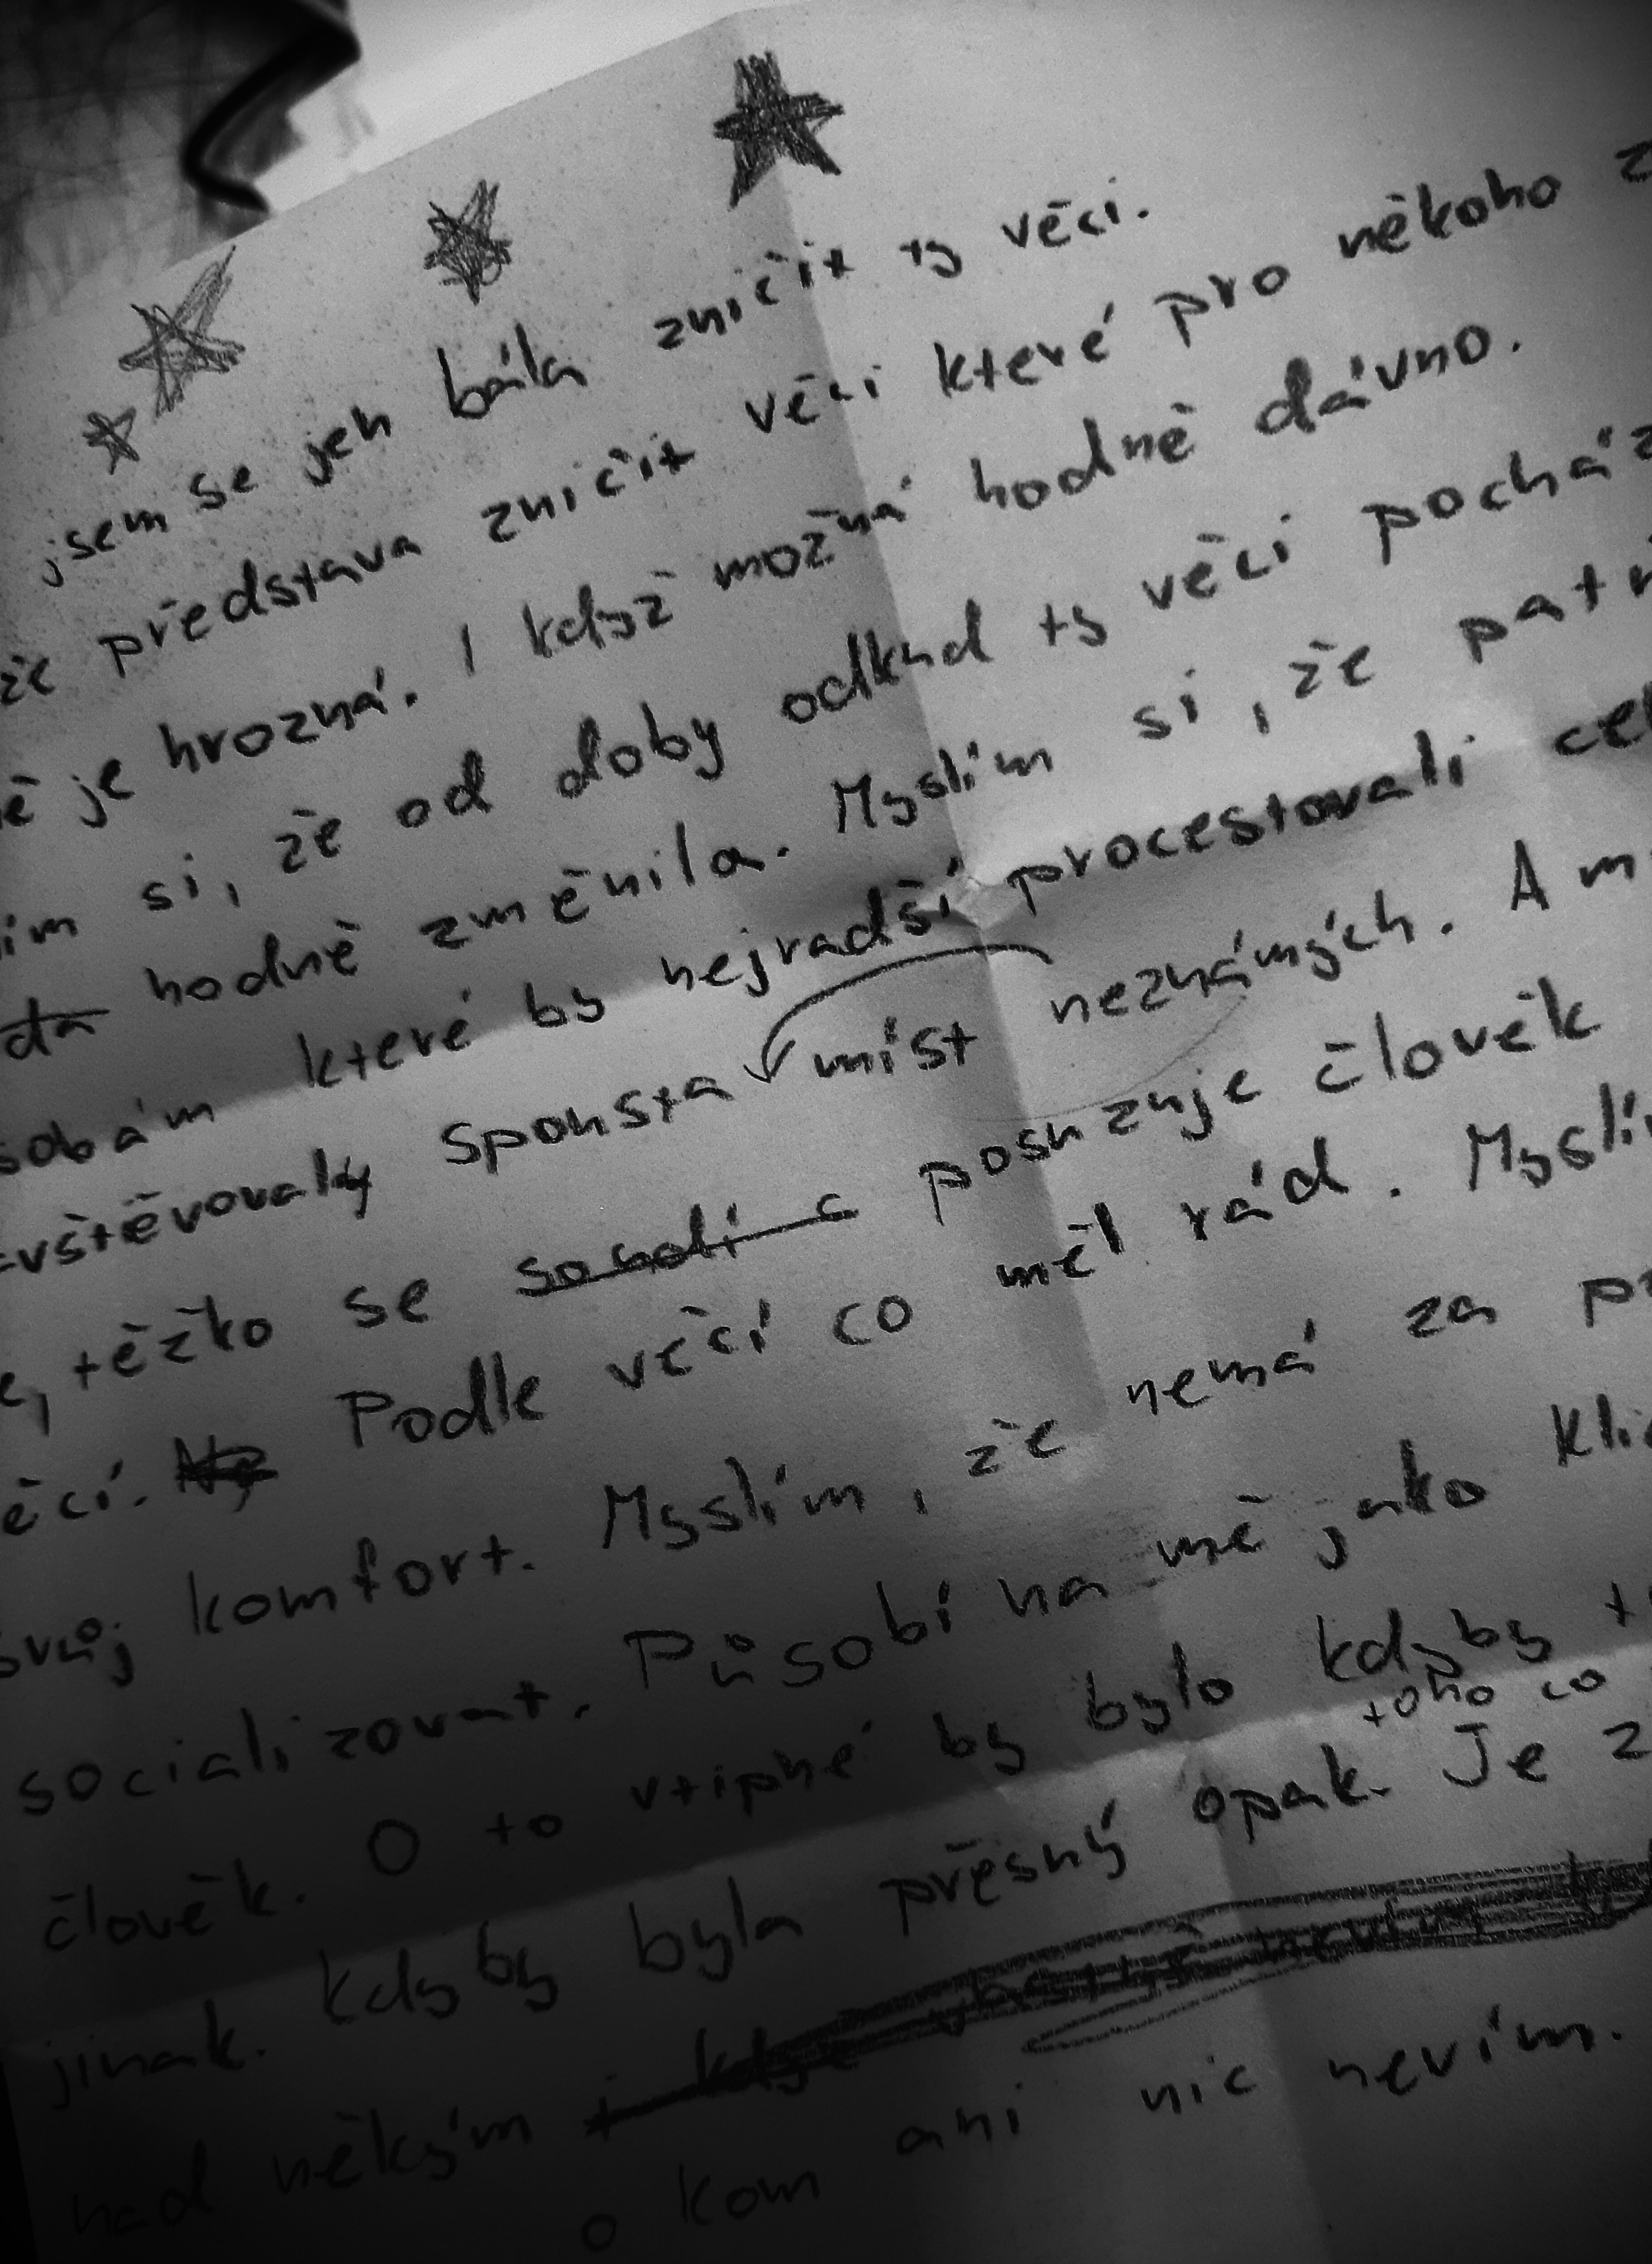 jsem se jen bála zničit ty věci.
že představa zničit věci které pro někoho
je hrozná. I když možná hodně dávno.
si, že od doby odkud ty věci pochá
hodně změnila. Myslím si, že pat
které by nejradši procestovali
Spousta míst neznámých. A
těžko se posuzuje člověk
Podle věcí co měl rád. Myslí
svůj komfort. Myslím, že nemá za
socializovat. Působí na mě jako
člověk. O to vtipné by bylo kdyby
toho co
jinak. Kdyby byla přesný opak. Je
nad někým
o kom ani nic nevím.